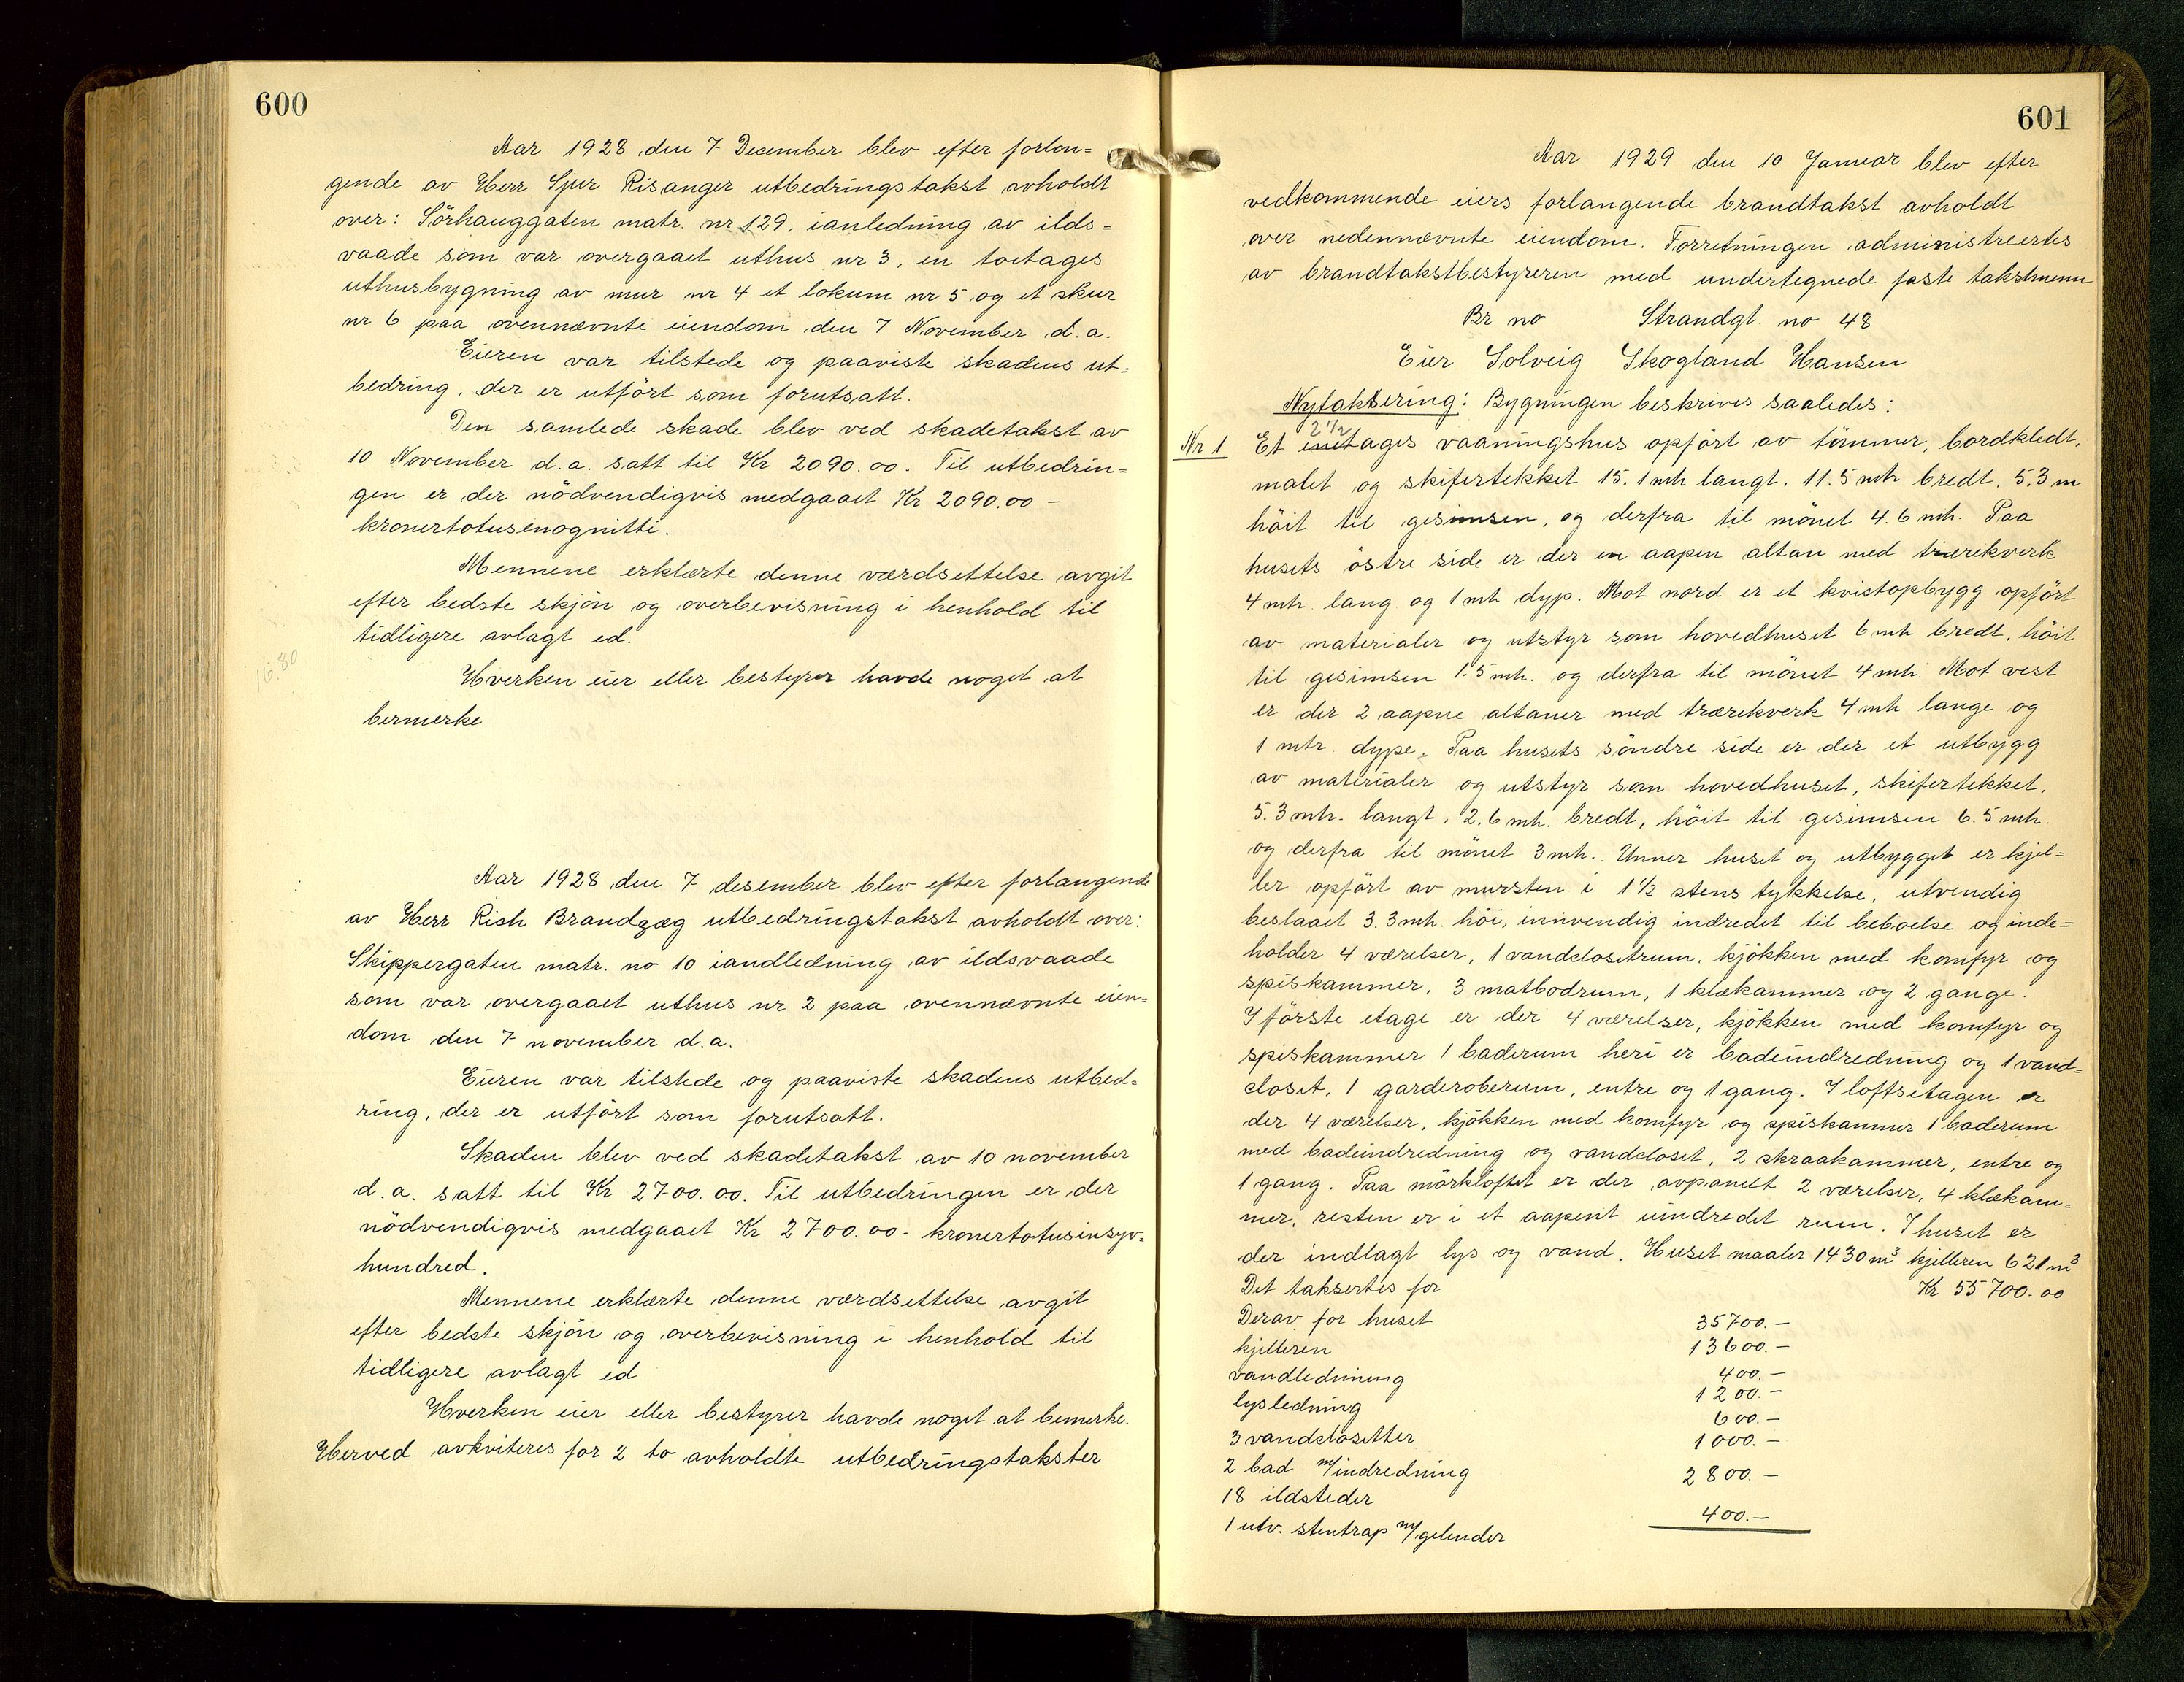 600
Aar 1928 den 7 December blev efter forlon=
gende av Herr Sjur Risanger utbedringstakst avholdt
over: Sörhauggaten matr. nr 129, ianledning av ilds=
vaade som var overgaaet uthus nr 3, en toetages
uthusbygning av mur nr 4 et lokum nr 5 og et skur
nr 6 paa ovennævnte eiendom den 7 November d.a.
Eieren var tilstede og paaviste skadens ut=
bedring, der er utfört som forutsatt.
Den samlede skade blev ved skadetakst av
10 November d.a. satt til Kr 2090.00. Til utbedrin=
gen er der nödvendigvis medgaaet Kr 2090.00 –
kronertotusenognitti.
Mennene erklærte denne værdsettelse avgit
efter bedste skjön og overbevisning i henhold til
tidligere avlagt ed.
16.80
Hverken eier eller bestyrer havde noget at
bermerke
Aar 1928 den 7 desember blev efter forlangende
av Herr Rish Brandzæg utbedringstakst avholdt over:
Skippergaten matr. no 10 iandledning av ildsvaade
som var overgaaet uthus nr 2 paa ovennævnte eien=
dom den 7 november d.a.
Eieren var tilstede og paaviste skadens utbed=
ring, der er utfört som forutsatt.
Skaden blev ved skadetakst av 10 november
d.a. satt til Kr 2700.00. Til utbedringen er der
nödvendigvis medgaaet Kr 2700.00 - kronertotusinsyv=
hundred.
Mennene erklærte denne værdsettelse avgit
efter bedste skjön og overbevisning i henhold til
tidligere avlagt ed
Hverken eier eller bestyrer havde noget at bemerke.
Herved avkviteres for 2 to avholdte utbedringstakster
601
Aar 1929 den 10 Januar blev efter
vedkommende eiers forlangende brandtakst avholdt
over nedennævnte eiendom. Forretningen administreertes
av brandtakstbestyreren med undertegnede faste takstmenn
Br no Strandgt no 48
Eier Solveig Skogland Hansen
Nytaksering: Bygningen beskrives saaledes:
2 1/2
Nr 1 Et enetages vaaningshus opfört av tömmer, bordkledt,
malet og skifertekket 15.1 mtr langt, 11.5 mtr bredt, 5.3 m
höit til gesimsen, og derfra til mönet 4.6 mtr. Paa
husets östre side er der en aapen altan med trærekverk
4 mtr. lang og 1 mtr dyp. Mot nord er et kvistopbygg opfört
av materialer og utstyr som hovedhuset 6 mtr bredt, höit
til gesimsen 1.5 mtr. og derfra til mönet 4 mtr. Mot vest
er der 2 aapne altaner med trærekverk 4 mtr lange og
1 mtr. dype. Paa husets söndre side er der et utbygg
av materialer og utstyr som hovedhuset, skifertekket,
5.3 mtr. langt, 2.6 mtr. bredt, höit til gesimsen 6.5 mtr.
og derfra til mönet 3 mtr. Unner huset og utbygget er kjel=
ler opfört av mursten i 1 1/2 stens tykkelse, utvendig
beslaaet 3.3 mtr. höi, innvendig indredet til beboelse og inde=
holder 4 værelser, 1 vandclosetrum, kjökken med komfyr og
spiskammer, 3 matbodrum, 1 klækammer og 2 gange.
I förste etage er der 4 værelser, kjökken med komfyr og
spiskammer 1 baderum heri er badeindredning og 1 vand=
closet, 1 garderoberum, entre og 1 gang. I loftsetagen er
der 4 værelser, kjökken med komfyr og spiskammer 1 baderum
med badeindredning og vandcloset, 2 skraakammer, entre og
1 gang. Paa mörkloftet er der avpanelt 2 værelser, 4 klækam=
mer, resten er i et aapent uindredet rum. I huset er
der indlagt lys og vand. Huset maaler 1430 m³ kjelleren 621 m³
Det taksertes for Kr 55700.00
Derav for huset 35700.–
kjelleren 13600.–
vandledning 400.–
lysledning 1200.–
3 vandclosetter 600.–
2 bad m/indredning 1000.–
18 ildsteder 2800.–
1 utv. stentrap m/gelender 400.–